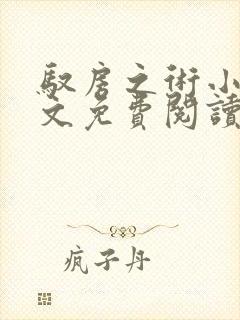 馭房之術小
文免費閱讀
疯子丹